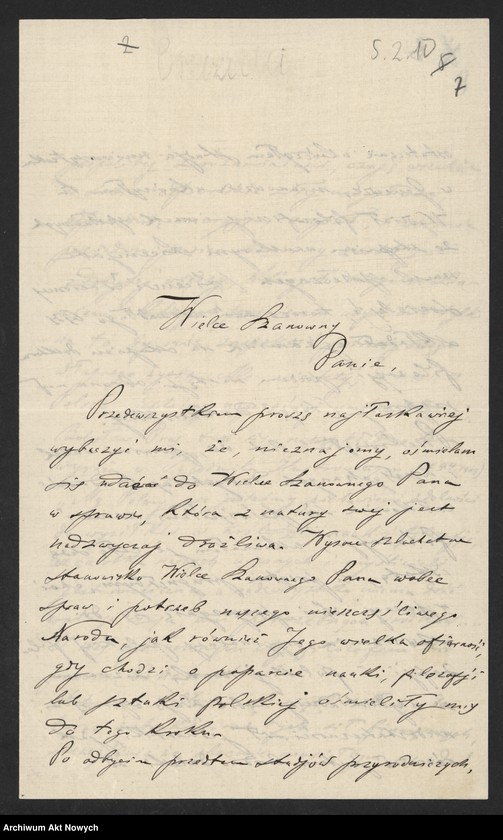 2
5.2.10
8
7
Wielce Szanowny
Panie,
Przedewszystkiem proszę najłaskawiej
wybaczyć mi, że, nieznajomy, ośmielam
się udać do Wielce Szanownego Pana
w sprawie, która z natury swej jest
nadzwyczaj drażliwa. Wysoce szlachetne
stanowisko Wielce Szanownego Pana wobec
spraw i potrzeb naszego nieszczęśliwego
Narodu, jak również Jego wielka ofiarność,
gdy chodzi o poparcie nauki, filozofji
lub sztuki polskiej ośmieliły mię
do tego kroku.
Po odbyciu przedtem studjów przyrodniczych,
Archiwum Akt Nowych